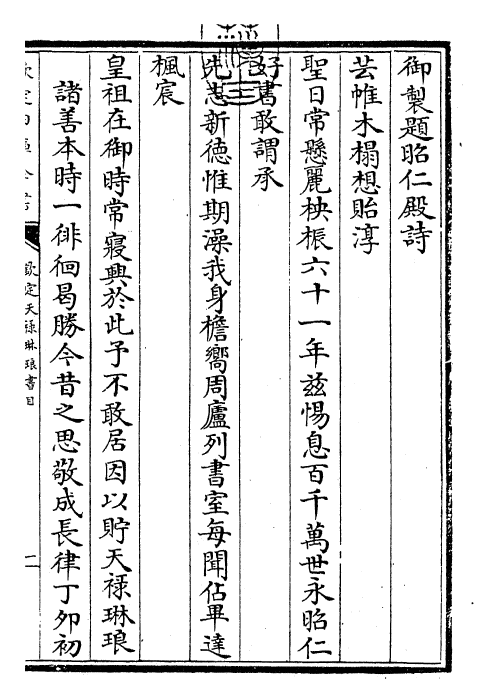 御製題昭仁殿詩
芸帷木榻想貽淳
聖日常懸麗柍桭六十一年兹惕息百千萬世永昭仁
好書敢謂承
先志新德惟期澡我身檐嚮周廬列書室每聞佔畢達
楓宸
皇祖在御時常寢興於此予不敢居因以貯天祿琳琅
諸善本時一徘徊曷勝今昔之思敬成長律丁夘初
欽定四庫全書
欽定天祿琳琅書目
二